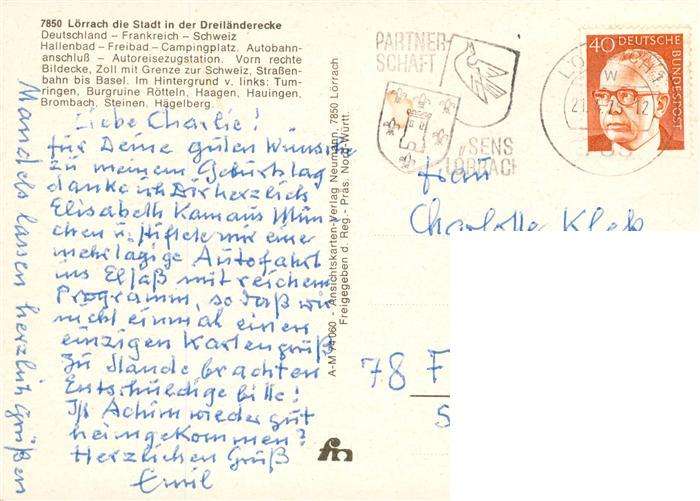 7850 Lörrach die Stadt in der Dreiländerecke
Deutschland – Frankreich – Schweiz
Hallenbad – Freibad – Campingplatz. Autobahn-
anschluß – Autoreisezugstation. Vorn rechte
Bildecke, Zoll mit Grenze zur Schweiz, Straßen-
bahn bis Basel. Im Hintergrund v. links: Tum-
ringen, Burgruine Rötteln, Haagen, Hauingen,
Brombach, Steinen, Hägelberg.
Liebe Charlie!
für Deine guten Wünsche
zu meinem Geburtstag
danke ich Dir herzlich
Elisabeth kam aus Mün
chen u. stiftete mir eine
mehrtägige Autofahrt
ins Elsaß mit reichem
Programm, so daß wir
nicht einmal einen
einzigen Kartengruß
zu Stande brachten
Entschuldige bitte!
Ist Achim wieder gut
heimgekommen?
Herzlichen Gruß
Emil
lassen herzlich Grüßen
A-M 74 060 - Ansichtskarten-Verlag Neumann, 7850 Lörrach
Freigegeben d. Reg.- Präs. Nord-Württ.
PARTNER-
SCHAFT
SENS
LÖRRACH
40 DEUTSCHE
BUNDESPOST
Frau
Charlotte
78 F
S